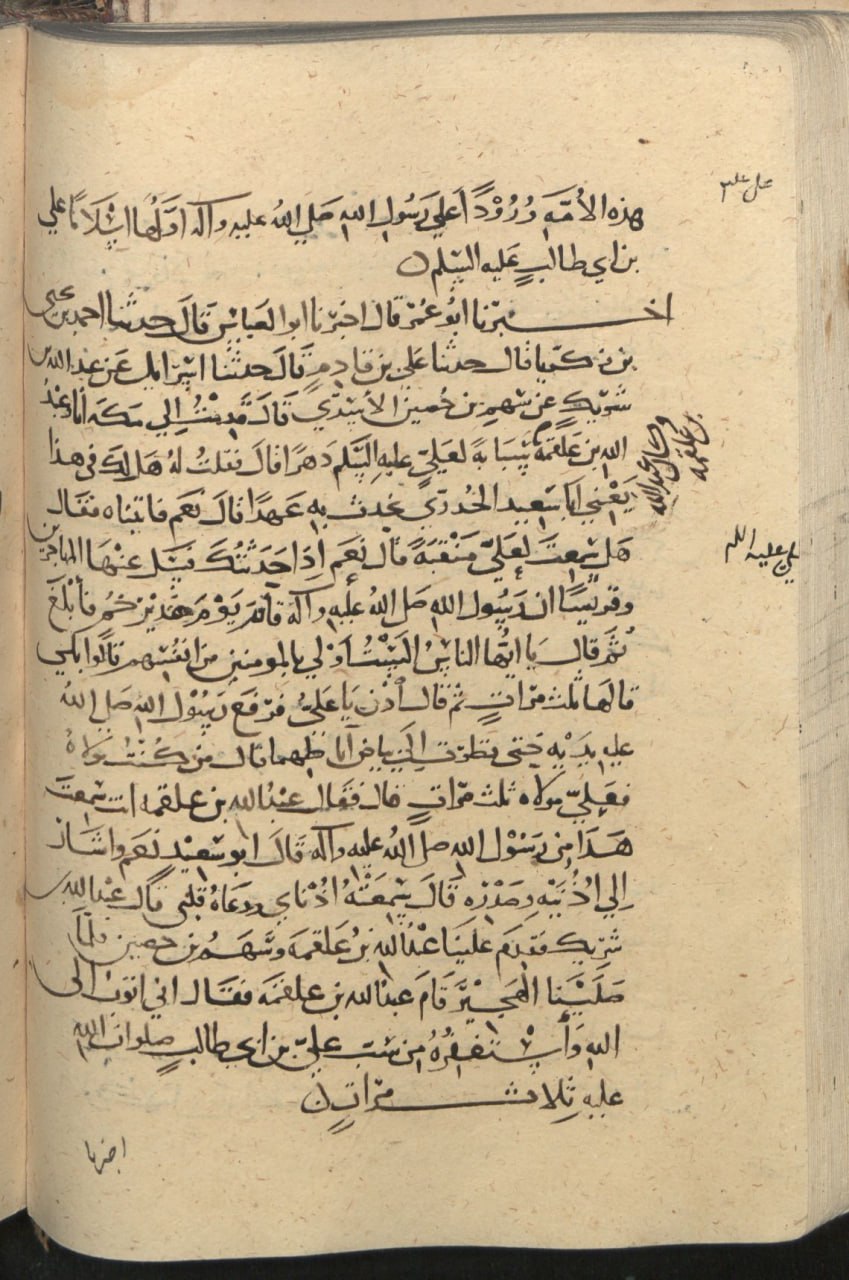 هذه الأمّة وُرُودًا على رَسُول الله صَلي اللهُ عليه وآله اوّلها اسْلامًا علي
بن ابي طالبٍ عَليه السَّلم
اخـبرنا ابُو عُمر قال اخبرنا ابو العباس قَالَ حدثنا احمد بن يحيى
بن زكريا قال حدثنا عَلي بن قادمٍ قَالَ حدثنا اسْرايل عَن عبد الله بن
شريكٍ عن سَهم بن حُصين الأسَدي قَالَ قدِمْتُ إلي مكة أنا وعَبْدُ
الله بن عَلقمة
وكان عبد الله
بن علقمة
سَبابةً لعَليّ عليه السَّلم دَهرًا قال فقلتُ لهُ هَل لك في هذا
يَعْني ابَا سَعِيد الخُدري نحدث به عَهدًا قال نعَم فاتيناه فقال
هَل سَمِعتَ لِعَليّ مَنْقبَةً قال نعَم إذا حَدثتُك فسَل عنها المهاجرين
وقريشًا ان رَسُول الله صَل اللهُ عليه وآله قام يَوْمَ غدير خُم فأبْلغَ
ثم قال يَا ايُّها الناسُ ألسْتُ أوْلي بالمومنين من انفُسهم قالوا بلي
قالها ثلث مرّاتٍ ثم قال أدْن يَا عَليُّ فرَفعَ رَسُول الله صَلى اللهُ
عليه يدَيْه حَتى نظرْت إلي بياض آباطِهما قال من كُنْتُ مولاهُ
فعَلِيّ مولاه ثلث مرّاتٍ قال فقال عبْدُ الله بن علقمه انت سَمِعتَ
هَذَا مِن رَسُول الله صل اللهُ عليه وآله قالَ ابو سَعِيْدٍ نَعَم واشار
إلي اُذُنيْه وصَدْره قَالَ سَمِعَتْهُ اذُنَاي ووَعَاهُ قلبي قال عبْد الله بن
شريك فقدِم عَلينا عبْدُ الله بْنُ عَلقمة وسَهم بن حصين فلمّا
صَلّيْنا الهجِيْرَ قَامَ عبدُ الله بن علقمَة فقَال اني اتوبُ الى
الله وَأسْتَغفِرُهُ مِن سَب عليّ بن ابي طالب صلوات الله
عليه ثلاث مرّاتٍ
اخبرنا